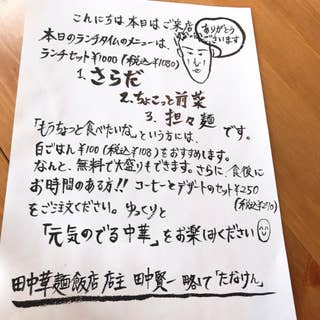 こんにちは 本日はご来店
ありがとう
ございます
本日のランチタイムのメニューは、
ランチセット¥1000(税込¥1080)
1. さらだ
2. ちょこっと前菜
3. 担々麺 です。
「もうちょっと食べたいな」という方には、
白ごはん¥100(税込¥108)をおすすめします。
なんと、無料で大盛りもできます。さらに、食後に
お時間のある方!! コーヒーとデザートのセット¥250
(税込¥270)
をご注文ください。ゆっくりと
「元気のでる中華」をお楽しみください
田中華麺飯店 店主 田中賢一 略して「たなけん」